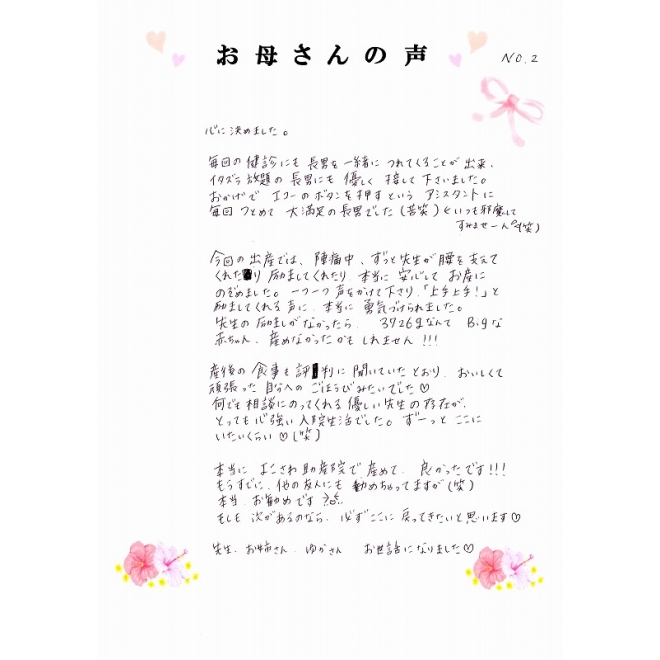 お母さんの声
NO.2
心に決めました。
毎回の健診にも長男を一緒につれてくることが出来、
イタズラ放題の長男にも優しく接して下さいました。
おかげでエコーのボタンを押すというアシスタントに
毎回つとめて大満足の長男でした(苦笑)←いつも邪魔して
すみませーん(笑)
今回の出産では、陣痛中、ずっと先生が腰を支えて
くれたり励ましてくれたり、本当に安心してお産に
のぞめました。一つ一つ声をかけて下さり、「上手上手!」と
励ましてくれる声に、本当に勇気づけられました。
先生の励ましがなかったら、3726gなんてBigな
赤ちゃん、産めなかったかもしれません!!!
産後の食事も評判に聞いていたとおり、おいしくて
頑張った自分へのごほうびみたいでした♡
何でも相談にのってくれる優しい先生の存在が、
とっても心強い入院生活でした。ずーっとここに
いたいくらい♡(笑)
本当によこざわ助産院で産めて、良かったです!!!
もうすでに、他の友人にも勧めちゃってますが(笑)
本当、お勧めです
もしも次があるのなら、必ずここに戻ってきたいと思います♡
先生、お姉さん、ゆかさん お世話になりました♡